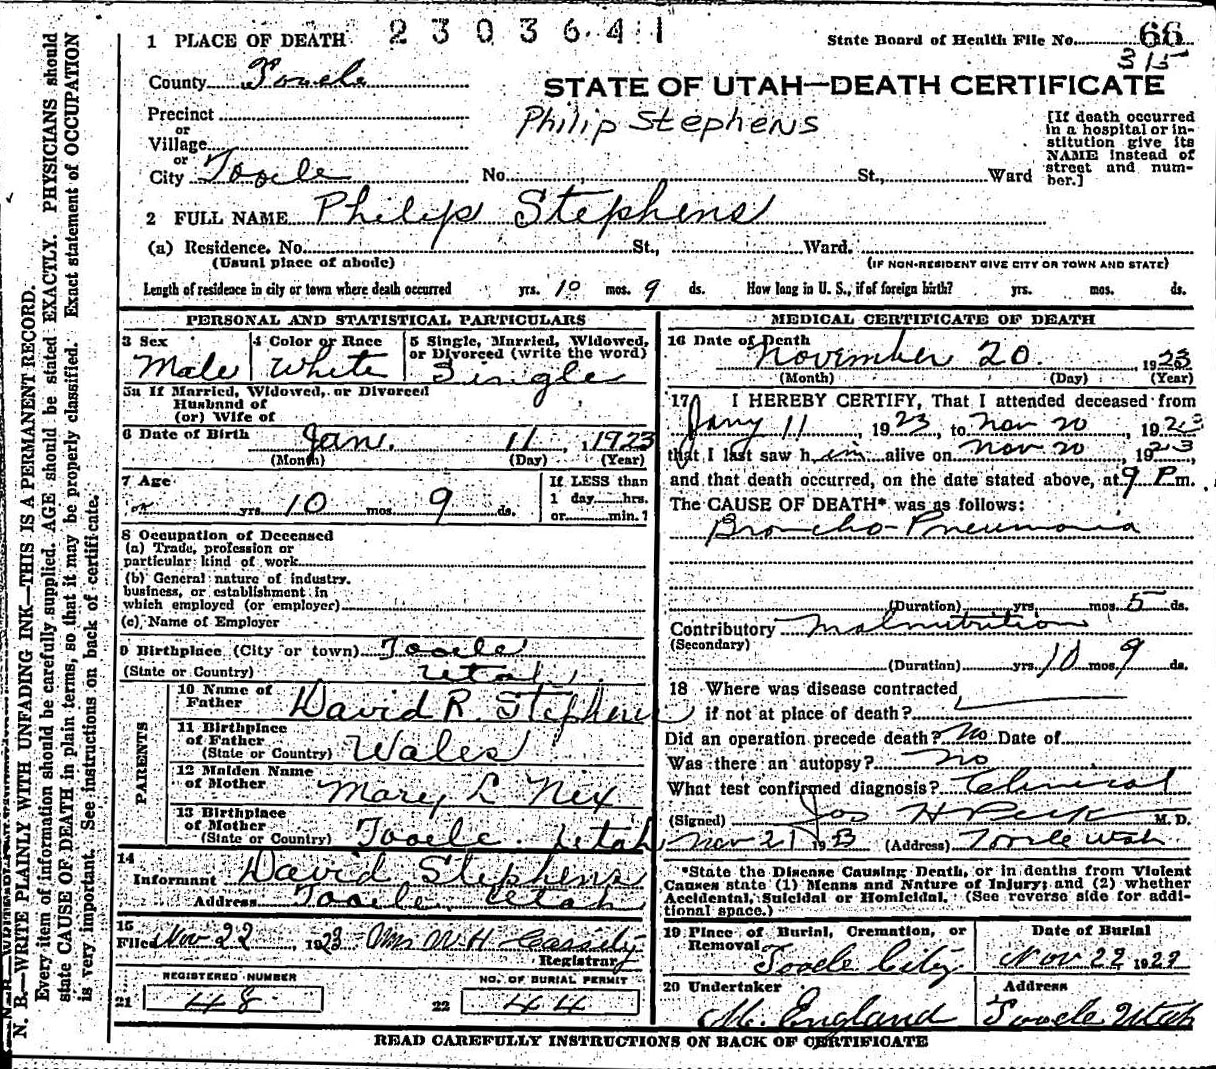 2303641
1 PLACE OF DEATH
State Board of Health File No. 66
315
County Tooele
STATE OF UTAH—DEATH CERTIFICATE
Precinct
Philip Stephens
or
Village
or
City Tooele No. St., Ward
[If death occurred
in a hospital or in-
stitution give its
NAME instead of
street and num-
ber.]
2 FULL NAME Philip Stephens
(a) Residence. No. St., Ward.
(Usual place of abode)
(IF NON-RESIDENT GIVE CITY OR TOWN AND STATE)
Length of residence in city or town where death occurred yrs. 10 mos. 9 ds. How long in U. S., if of foreign birth? yrs. mos. ds.
PERSONAL AND STATISTICAL PARTICULARS
3 Sex
Male
4 Color or Race
White
5 Single, Married, Widowed,
or Divorced (write the word)
Single
5a If Married, Widowed, or Divorced
Husband of
(or) Wife of
6 Date of Birth
Jan. 11, 1923
(Month) (Day) (Year)
7 Age
yrs. 10 mos. 9 ds.
If LESS than
1 day hrs.
or min.?
8 Occupation of Deceased
(a) Trade, profession or
particular kind of work
(b) General nature of industry,
business, or establishment in
which employed (or employer)
(c) Name of Employer
9 Birthplace (City or town) Tooele
(State or Country) Utah
PARENTS
10 Name of
Father David R. Stephens
11 Birthplace
of Father
(State or Country) Wales
12 Maiden Name
of Mother Mary L Nix
13 Birthplace
of Mother
(State or Country) Tooele. Utah
14
Informant David Stephens
Address Tooele, Utah
15
Filed Nov 22, 1923 W H Cassity
Registrar
REGISTERED NUMBER
21 48
NO. OF BURIAL PERMIT
22 44
MEDICAL CERTIFICATE OF DEATH
16 Date of Death
November 20. 1923
(Month) (Day) (Year)
17 I HEREBY CERTIFY, That I attended deceased from
Jany 11, 1923, to Nov 20 1923
that I last saw him alive on Nov 20, 1923
and that death occurred, on the date stated above, at 9 P m.
The CAUSE OF DEATH* was as follows:
Broncho-Pneumonia
(Duration) yrs. mos. 5 ds.
Contributory Malnutrition
(Secondary)
(Duration) yrs. 10 mos. 9 ds.
18 Where was disease contracted
if not at place of death?
Did an operation precede death? No Date of
Was there an autopsy? No
What test confirmed diagnosis? Clinical
(Signed) Jos H Peck M. D.
Nov 21 1923 (Address) Tooele Utah
*State the Disease Causing Death, or in deaths from Violent
Causes state (1) Means and Nature of Injury; and (2) whether
Accidental, Suicidal or Homicidal. (See reverse side for addi-
tional space.)
19 Place of Burial, Cremation, or
Removal
Tooele City.
Date of Burial
Nov 22 192
20 Undertaker
M. England
Address
Tooele Utah
READ CAREFULLY INSTRUCTIONS ON BACK OF CERTIFICATE
N. B.—WRITE PLAINLY WITH UNFADING INK—THIS IS A PERMANENT RECORD.
Every item of information should be carefully supplied. AGE should be stated EXACTLY. PHYSICIANS should
state CAUSE OF DEATH in plain terms, so that it may be properly classified. Exact statement of OCCUPATION
is very important. See instructions on back of certificate.